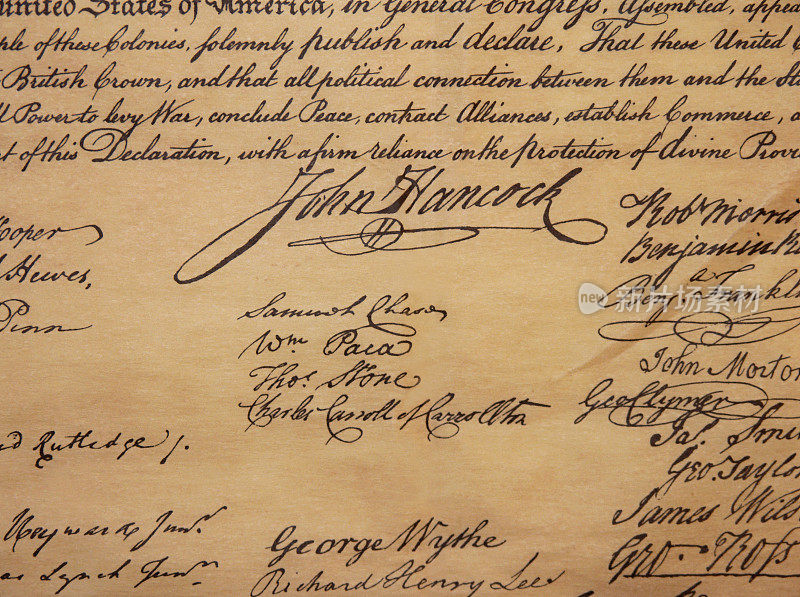 United States of America, in General Congress, Assembled, appea
ple of these Colonies, solemnly publish and declare, That these United C
British Crown, and that all political connection between them and the Sta
ll Power to levy War, conclude Peace, contract Alliances, establish Commerce, a
rt of this Declaration, with a firm reliance on the protection of divine Provi
John Hancock
ooper
Hewes,
Penn
d Rutledge Jr.
Heyward Junr.
as Lynch Junr.
Samuel Chase
Wm. Paca
Thos. Stone
Charles Carroll of Carrollton
George Wythe
Richard Henry Lee
Robt. Morris
Benjamin Ru
Benj. Franklin
John Morton
Geo Clymer
Jas. Smi
Geo. Taylor
James Wils
Geo. Ross
new 新片场素材